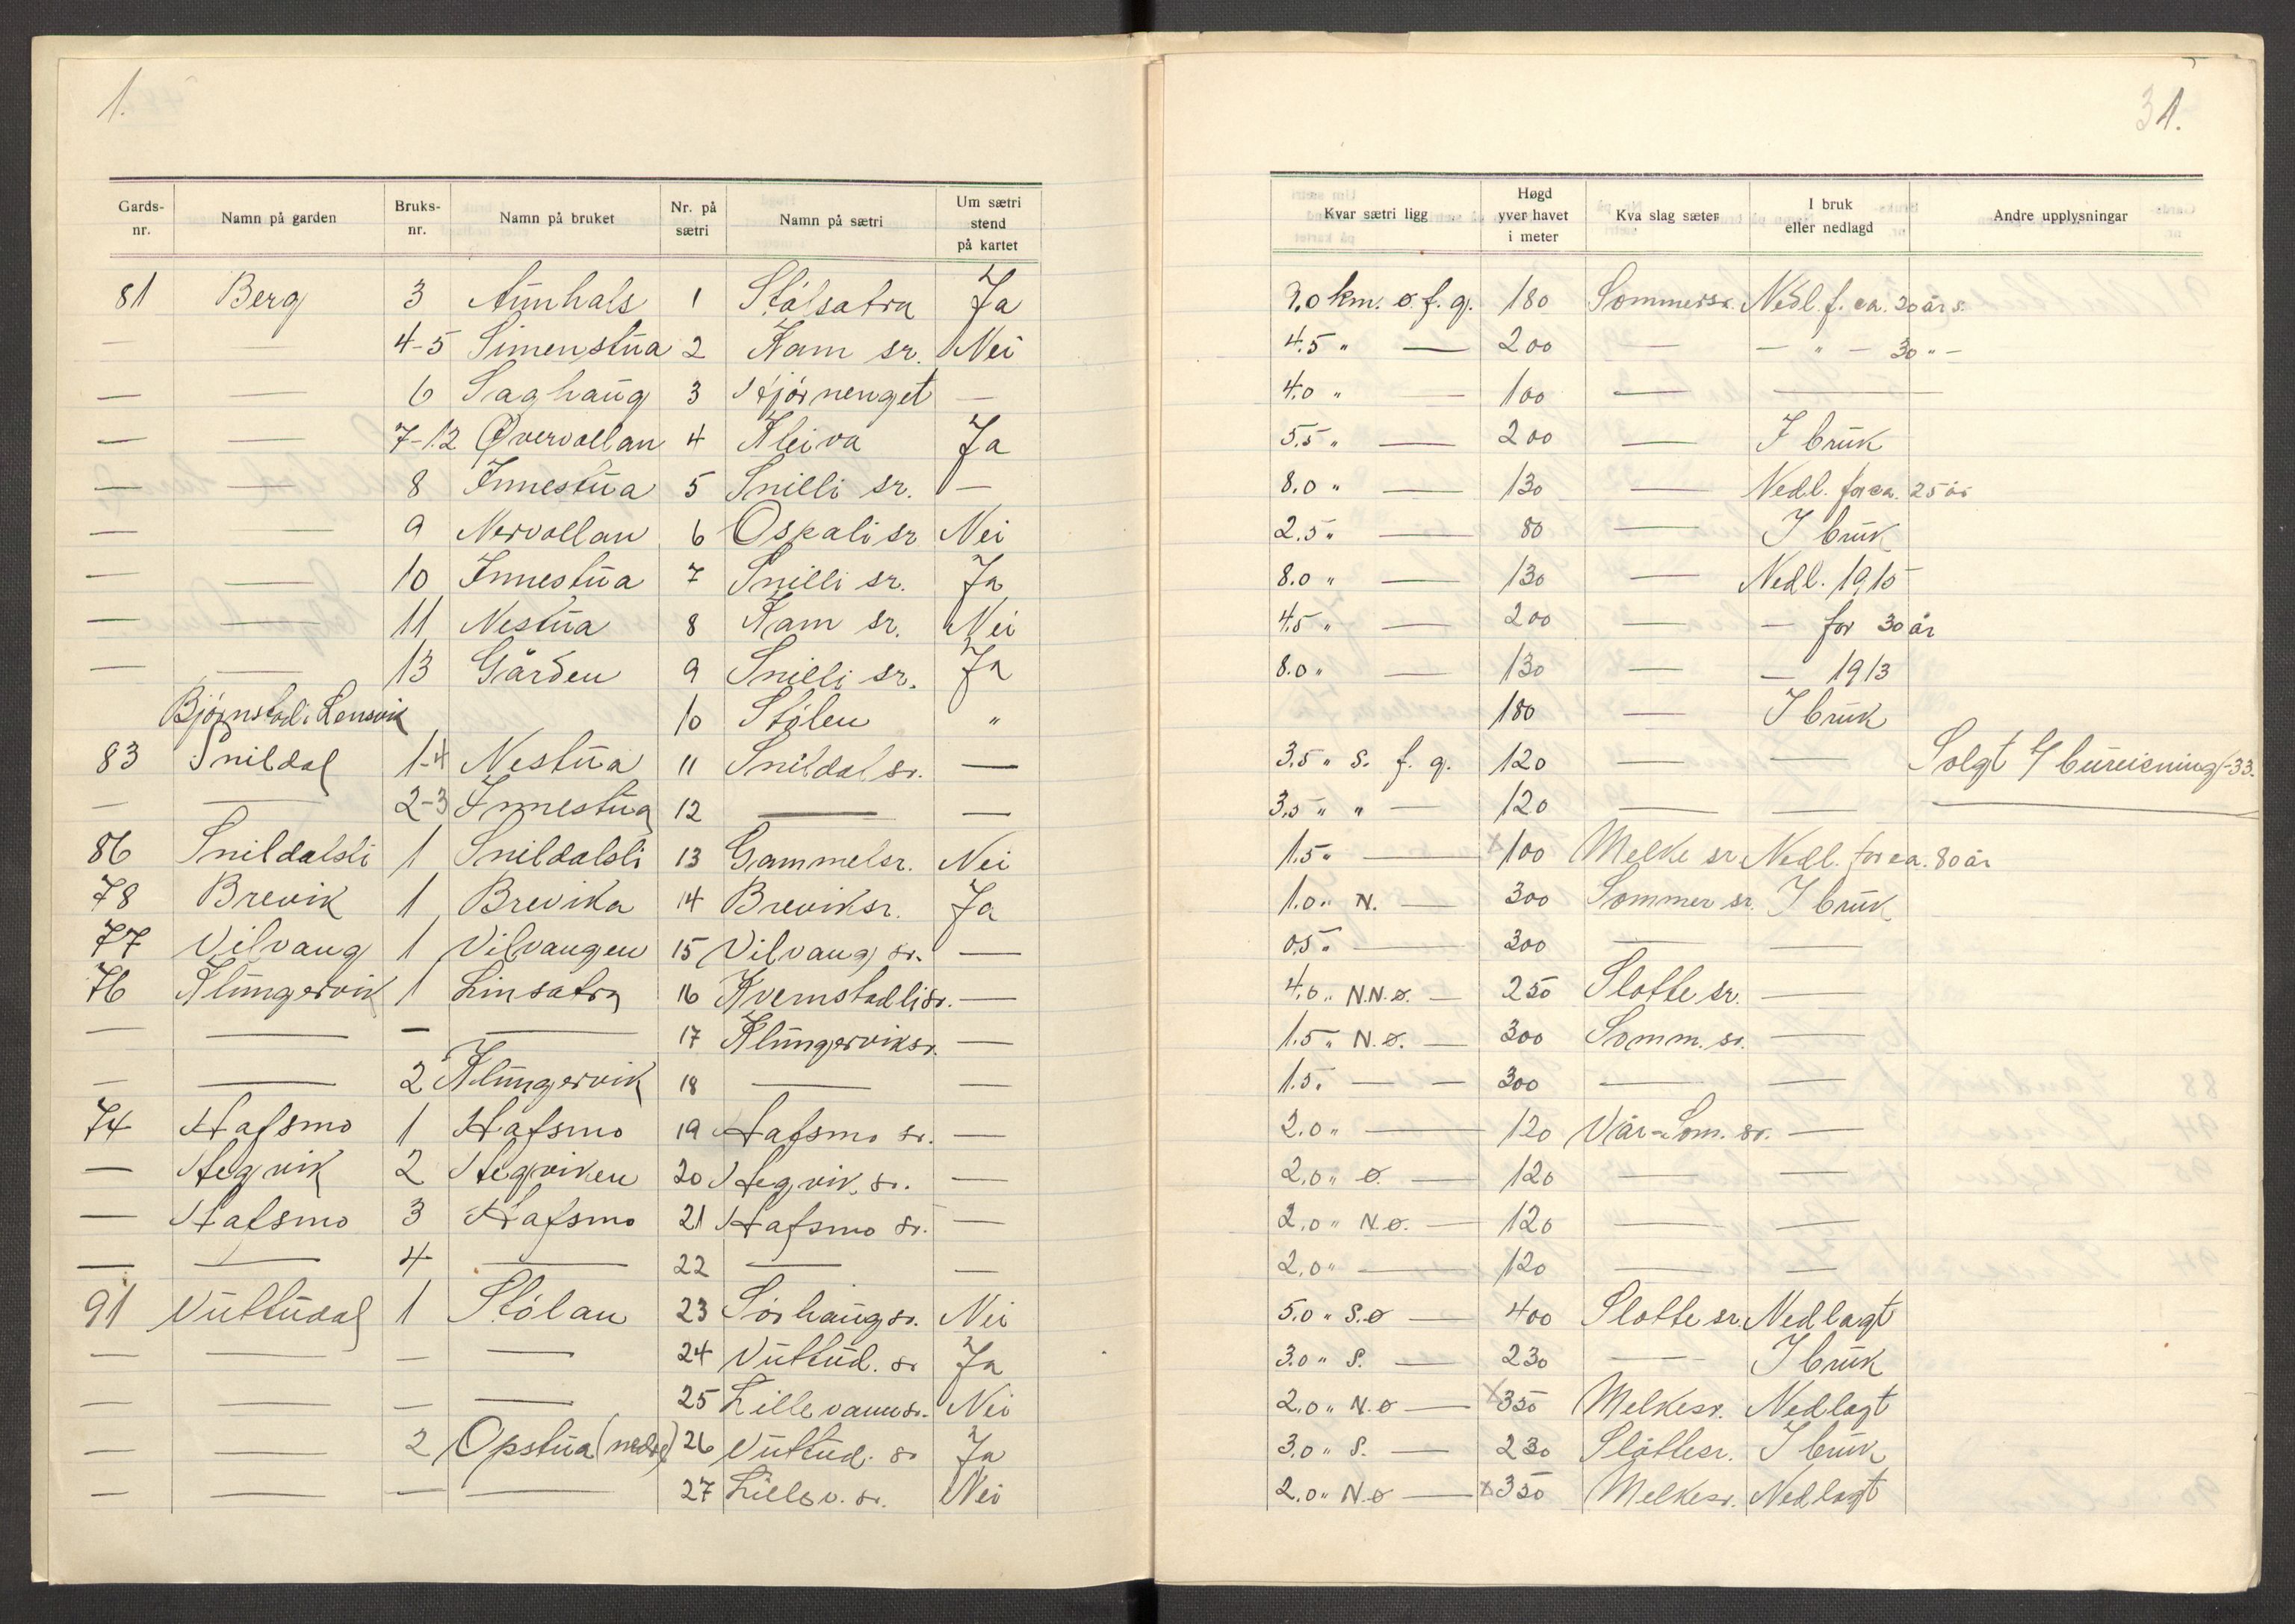 1.
31.
Gards-nr. Namn på garden Bruks-nr. Namn på bruket Nr. på sætri Namn på sætri Um sætri stend på kartet Kvar sætri ligg Høgd yver havet i meter Kva slag sæter I bruk eller nedlagd Andre upplysningar
81 Berg 3 Aunhals 1 Stølsatra Ja 2,0 km. ø. f. g. 180 Sommersr. Nedl. f. ca. 20 år s.
— — 4-5 Simenstua 2 Kam sr. Nei 4.5 " — 200 — — " — 30 " —
— — 6 Saghaug 3 Stjørnenget — 4.0 " — 100 — —
— — 7-12 Øvervollan 4 Kleiva Ja 5.5 " — 200 — I bruk
— — 8 Innestua 5 Snilli sr. — 8.0 " — 130 — Nedl. for ca. 25 år
— — 9 Nervollan 6 Ospali sr Nei 2.5 " — 80 — I bruk
— — 10 Innestua 7 Snilli sr. Ja 8.0 " — 130 — Nedl. 1915
— — 11 Nestua 8 Kam sr. Nei 4.5 " — 200 — — for 30 år
— — 13 Gården 9 Snilli sr. Ja 8.0 " — 130 — — 1913
Bjørnstad i Lensvik 10 Stølen " 180 — I bruk
83 Snildal 1-4 Nestua 11 Snildal sr. — 3.5 " S. f. g. 120 — — Solgt t/ bureisning -33.
— — 2-3 Innestua 12 — — 3.5 " " — 120 — — —
86 Snildalsli 1 Snildalsli 13 Gammelsr. Nei 1.5 " — x 100 Melke sr. Nedl. for ca. 80 år
78 Brevik 1 Brevika 14 Breviksr. Ja 1.0 " N. — 300 Sommer sr. I bruk
77 Vilvang 1 Vilvangen 15 Vilvang sr. — 0.5 " — 300 — —
76 Klungervik 1 Linsatra 16 Kvernstadlisr. — 4.0 " N.N.Ø. — 250 Slotte sr. —
— — — — 17 Klungerviksr. — 1.5 " N.Ø. — 300 Somm. sr. —
— — 2 Klungervik 18 — — 1.5 " — — 300 — —
74 Hafsmo 1 Hafsmo 19 Hafsmo sr. — 2.0 " — 120 Vår-Som. sr. —
— Hegvik 2 Hegviken 20 Hegvik. sr. — 2.0 " Ø. — 120 — —
— Hafsmo 3 Hafsmo 21 Hafsmo sr. — 2.0 " N.Ø. — 120 — —
— — 4 — 22 — — 2.0 " — 120 — —
91 Vuttudal 1 Stølan 23 Sørhaugsr. Nei 5.0 " S.Ø — 400 Slotte sr. Nedlagt
— — — — 24 Vuttud. sr Ja 3.0 " S. — 230 — I bruk
— — — — 25 Lillevannsr. Nei 2.0 " N.Ø — x 350 Melkesr. Nedlagt
— — 2 Opstua (nedre) 26 Vuttud. sr Ja 3.0 " S. — 230 Slåttesr. I bruk
— — — — 27 Lillev. sr. Nei 2.0 " N.Ø — x 350 Melkesr. Nedlagt